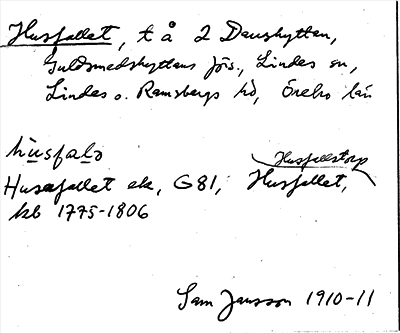 Husfallet, t å 2 Danshyttan,
Guldsmedshyttansförs., Lindes sn,
Lindes o. Ramsbergs hd, Örebro län
husfalə
Husfallstorp
Husafallet ek, G81, Husfallet,
kb 1775-1806
Sam Jansson 1910-11